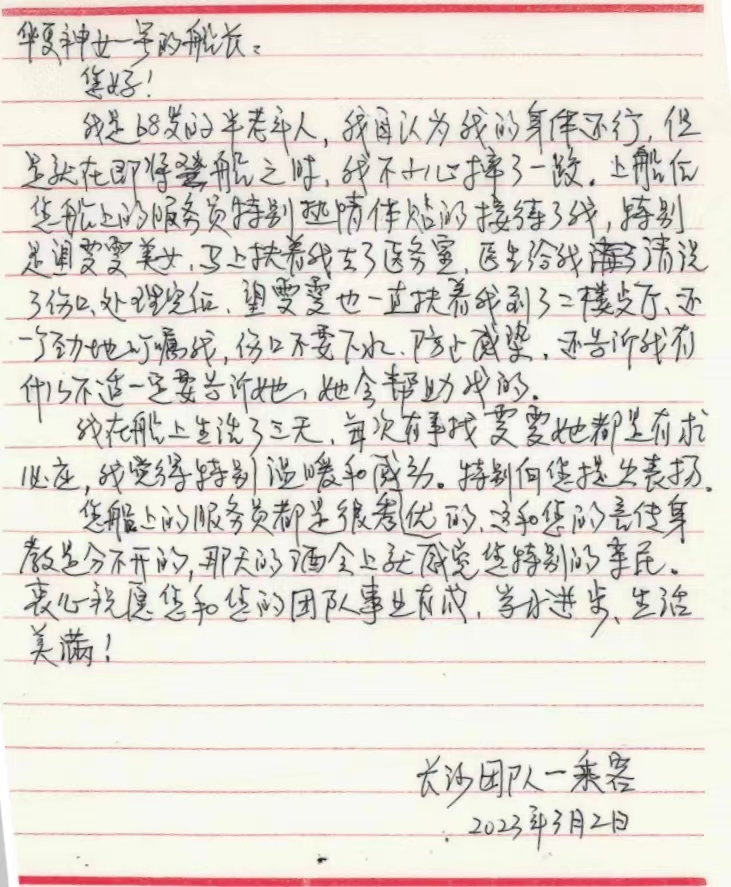 华夏神女一号的船长：
您好！
我是68岁的半老年人，我自认为我的身体还行，但
是就在即将登船之时，我不小心摔了一跤。上船后
您船上的服务员特别热情体贴的接待了我，特别
是周雯雯美女，马上扶着我去了医务室，医生给我清洗
了伤口，处理完后，雯雯也一直扶着我到了二楼餐厅，还
一个劲地叮嘱我，伤口不要下水，防止感染，还告诉我有
什么不适一定要告诉她，她会帮助我的。
我在船上生活了三天，每次有事找雯雯她都是有求
必应，我觉得特别温暖和感动。特别向您提出表扬。
您船上的服务员都是很秀优的，这和您的言传身
教是分不开的，那天的酒会上就感觉您特别的亲民。
衷心祝愿您和您的团队事业有成，学习进步，生活
美满！
长沙团队一乘客
2023年3月2日